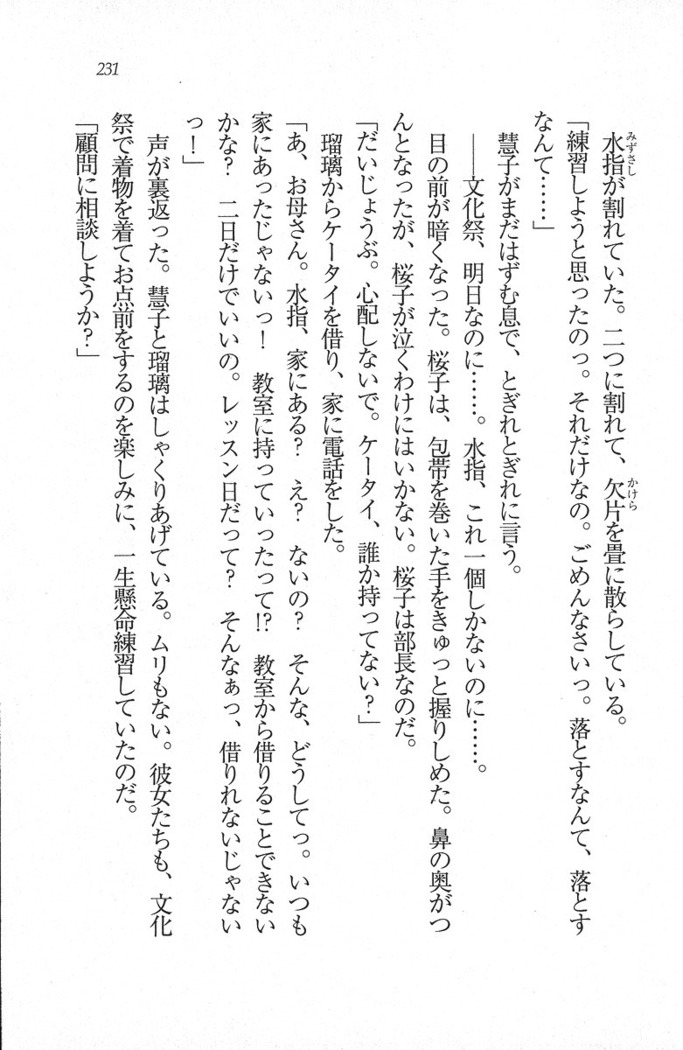 231
水指が割れていた。二つに割れて、欠片を畳に散らしている。
みずさし
かけら
「練習しようと思ったのっ。それだけなの。ごめんなさいっ。落とすなんて、落とす
なんて……」
慧子がまだはずむ息で、とぎれとぎれに言う。
――文化祭、明日なのに……。水指、これ一個しかないのに……。
目の前が暗くなった。桜子は、包帯を巻いた手をきゅっと握りしめた。鼻の奥がつ
んとなったが、桜子が泣くわけにはいかない。桜子は部長なのだ。
「だいじょうぶ。心配しないで。ケータイ、誰か持ってない？」
瑠璃からケータイを借り、家に電話をした。
「あ、お母さん。水指、家にある？　え？　ないの？　そんな、どうしてっ。いつも
家にあったじゃないっ！　教室に持っていったって!?　教室から借りることできない
かな？　二日だけでいいの。レッスン日だって？　そんなぁっ、借りれないじゃない
っ！」
声が裏返った。慧子と瑠璃はしゃくりあげている。ムリもない。彼女たちも、文化
祭で着物を着てお点前をするのを楽しみに、一生懸命練習していたのだ。
「顧問に相談しようか？」